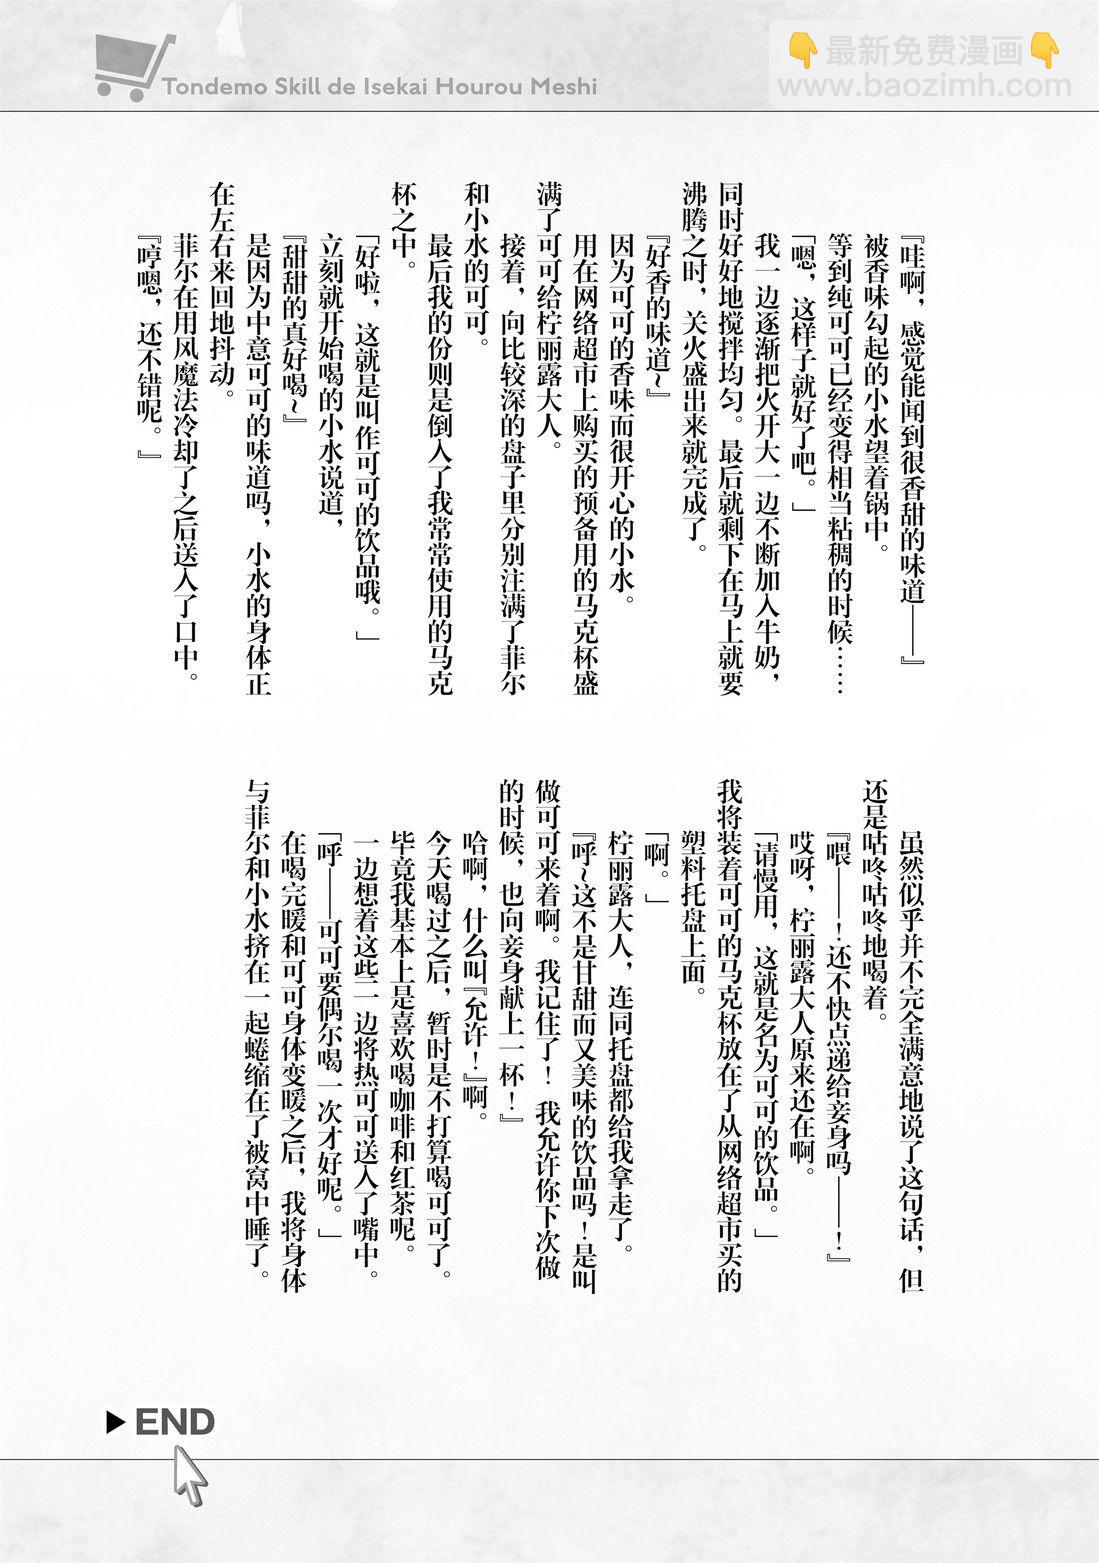 👇最新免费漫画👇
www.baozimh.com
Tondemo Skill de Isekai Hourou Meshi
『哇啊，感觉能闻到很香甜的味道——』
被香味勾起的小水望着锅中。
等到纯可可已经变得相当粘稠的时候……
「嗯，这样子就好了吧。」
我一边逐渐把火开大一边不断加入牛奶，
同时好好地搅拌均匀。最后就剩下在马上就要
沸腾之时，关火盛出来就完成了。
『好香的味道~』
因为可可的香味而很开心的小水。
用在网络超市上购买的预备用的马克杯盛
满了可可给柠丽露大人。
接着，向比较深的盘子里分别注满了菲尔
和小水的可可。
最后我的份则是倒入了我常常使用的马克
杯之中。
「好啦，这就是叫作可可的饮品哦。」
立刻就开始喝的小水说道，
『甜甜的真好喝~』
是因为中意可可的味道吗，小水的身体正
在左右来回地抖动。
菲尔在用风魔法冷却了之后送入了口中。
『哼嗯，还不错呢。』
虽然似乎并不完全满意地说了这句话，但
还是咕咚咕咚地喝着。
『喂——！还不快点递给妾身吗——！』
哎呀，柠丽露大人原来还在啊。
「请慢用，这就是名为可可的饮品。」
我将装着可可的马克杯放在了从网络超市买的
塑料托盘上面。
「啊。」
柠丽露大人，连同托盘都给我拿走了。
『呼~这不是甘甜而又美味的饮品吗！是叫
做可可来着啊。我记住了！我允许你下次做
的时候，也向妾身献上一杯！』
哈啊，什么叫『允许！』啊。
今天喝过之后，暂时是不打算喝可可了。
毕竟我基本上是喜欢喝咖啡和红茶呢。
一边想着这些一边将热可可送入了嘴中。
「呼——可可要偶尔喝一次才好呢。」
在喝完暖和可可身体变暖之后，我将身体
与菲尔和小水挤在一起蜷缩在了被窝中睡了。
▶END